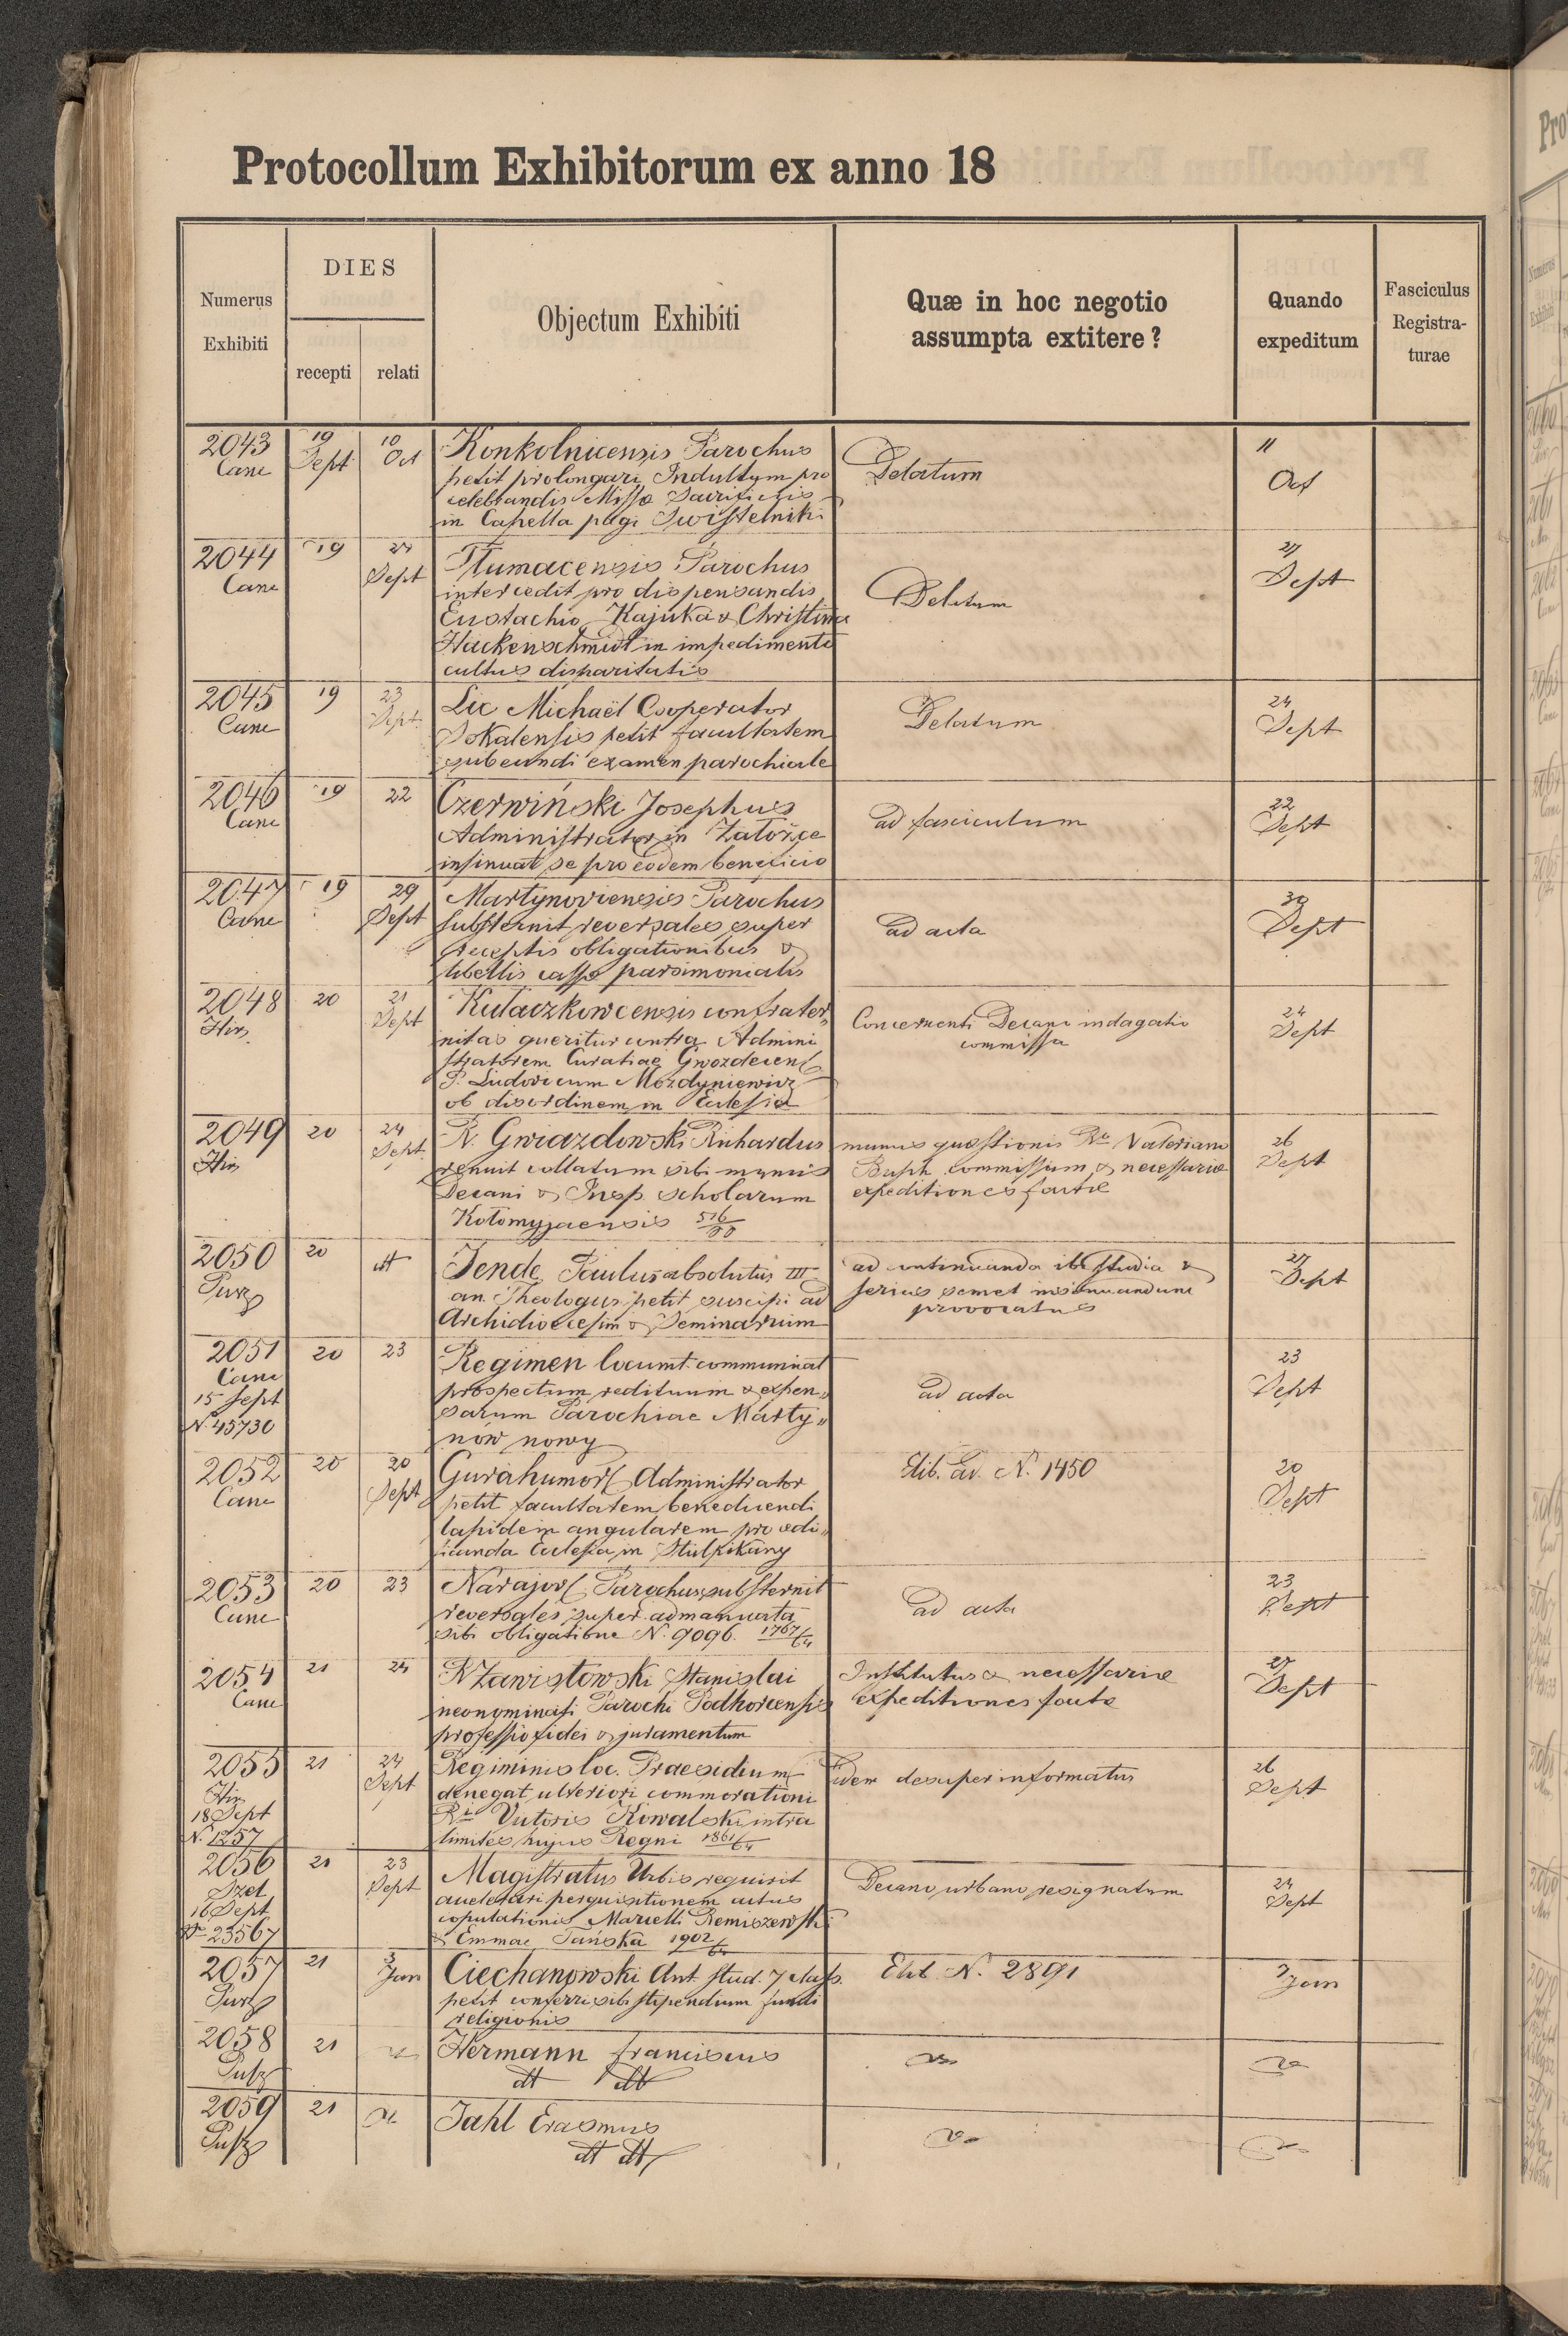 Protocollum Exhibitorum ex anno 18
Numerus
Exhibiti
DIES
recepti
relati
Objectum Exhibiti
Quæ in hoc negotio
assumpta extitere?
Quando
expeditum
Fasciculus
Registra-
turae
2043
Canc
19
Sept
10
Oct
Konkolnicensis Parochus
petit prolongari Indultum pro
celebrandis Missæ Sacrificiis
in Capella pagi Swistelniki
Delatum
11
Oct
2044
Canc
19
27
Sept
Tlumacensis Parochus
intercedit pro dispensandis
Eustachio Kajuka & Christina
Hackenschmidt in impedimento
cultus disparitatis
Delatum
27
Sept
2045
Canc
19
23
Sept
Lic Michaël Cooperator
Sokalensis petit facultatem
subeundi examen parochiale
Delatum
24
Sept
2046
Canc
19
22
Czerwiński Josephus
Administrator in Załośce
insinuat se pro eodem beneficio
ad fasciculum
22
Sept
2047
Canc
19
29
Sept
Martynoviensis Parochus
substernit reversales super
receptis obligationibus &
libellis cassæ parsimonialis
ad acta
30
Sept
2048
Hir
20
21
Sept
Kułaczkowcensis confrater„
nitas queritur contra Admini
stratorem Curatiae Gwozdecens
P. Ludovicum Mozdyniewicz
ob disordinem in Eclesia
Concernenti Decano indagatio
commissa
24
Sept
2049
Hir
20
24
Sept
R. Gwiazdowski Richardus
renuit collatum sibi munus
Decani & Insp. scholarum
Kołomyjaensis 516
munus quæstionis Rdo Valeriano
commissum & necessariæ
expeditiones factæ
26
Sept
2050
20
dt
Jende Paulus absolutus III
an. Theologus petit suscipi ad
Archidioecesim & Seminarium
ad continuanda ibi studia &
serius semet insinuandum
provocatus
27
Sept
2051
Canc
15 Sept
N. 45730
20
23
Regimen locumt. communicat
prospectum redituum & expen„
sarum Parochiae Marty„
nów nowy
ad acta
23
Sept
2052
Canc
20
20
Sept
Gurahumors Administrator
petit facultatem benedicendi
lapidem angularem pro ædi„
ficanda Eclesia in Stulpikany
Elib. ad. N. 1450
20
Sept
2053
Canc
20
23
Narajovs Parochus substernit
reversales super admanuata
sibi obligatione N. 9096. 1767/64
ad acta
23
Sept
2054
Canc
21
24
R Zawistowski Stanislai
neonominati Parochi Podhorcensis
professio fidei & juramentum
Institutus & necessariæ
expeditiones factæ
27
Sept
2055
Hir
18 Sept
N. 1257
21
24
Sept
Regiminis loc. Praesidium
denegat ulteriori commorationi
Rdi Victoris Kowalski intra
limites hujus Regni 1861/64
idem desuper informatus
26
Sept
2056
Szel
16 Sept
N 23567
21
23
Sept
Magistratus Urbis requirit
accelerari perquisitionem actus
copulationis Marcelli Remiszewski
& Emmae Tańska 1902/64
Decano urbano resignatum
24
Sept
2057
21
3
Jan
Ciechanowski Ant. stud. 7 class.
petit conferri sibi stipendium fundi
religionis
Elib. N. 2891
3
Jan
2058
21
Hermann Franciscus
dt dt
2059
21
Jahl Erasmus
dt dt